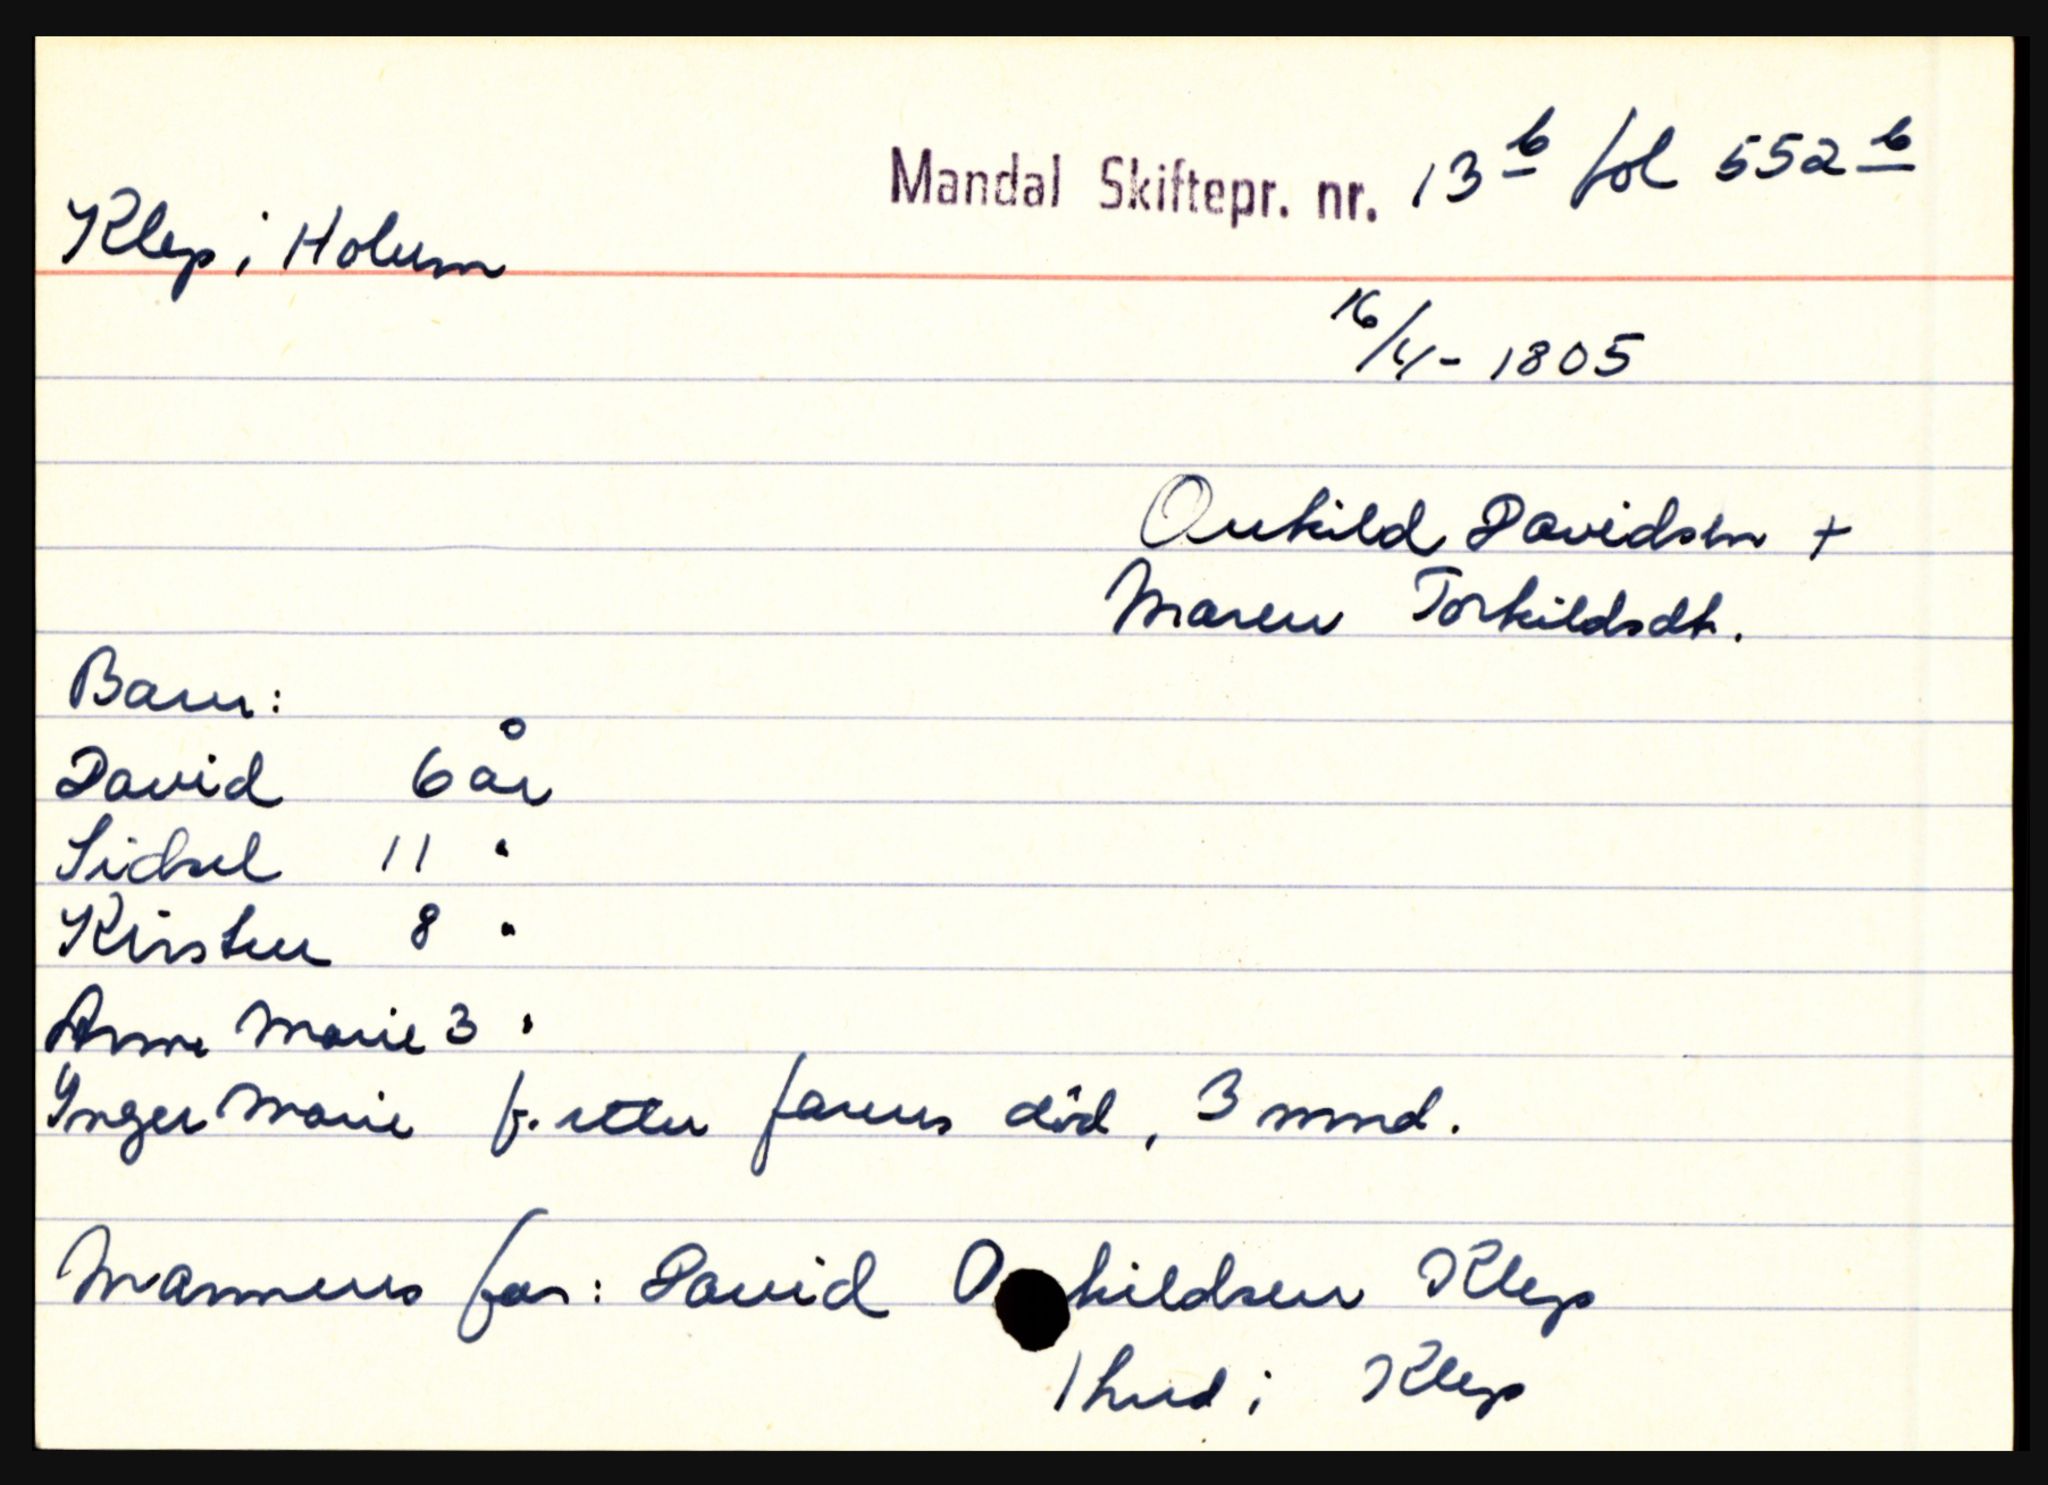 Mandal Skiftepr. nr. 13 b fol 552 b
Klep i Holum
16/4 - 1805
Onkild Davidsen +
Maren Torkildsdt.
Barn:
David 6 år
Sidsel 11 "
Kirsten 8 "
Anne Marie 3 "
Inger Marie f. etter farens död, 3 mnd.
Mannens far: David O kildsen Klep
1 hud i Klep